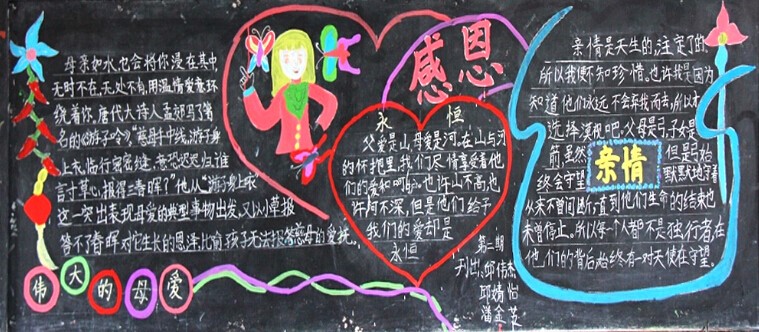 母亲如水,也会将你浸在其中,
无时不在,无处不有,用温情爱意环
绕着你,唐代大诗人孟郊写了著
名的《游子吟》“慈母手中线,游子身
上衣,临行密密缝,意恐迟迟归,谁
言寸草心,报得三春晖?”他从“游子身上衣”
这一突出表现母爱的典型事物出发,又以小草报
答不了春晖对它生长的恩泽比喻孩子无法报答慈母的爱抚。
伟大的母爱
感恩
永恒
父爱是山,母爱是河。在山与河
的怀抱里,我们尽情享受着他
们的爱和呵护。也许山不高,也
许河不深,但是他们给予
我们的爱却是
永恒
第二期
刊出:邱伟杰
邱婧怡
潘金
亲情是天生的,注定了的
所以我便不知珍惜。也许我是因为
知道他们永远不会弃我而去,所以才
选择漠视吧。父母是弓,子女是
箭,虽然
但是弓始
终会守望
默默地守着
亲情
从来不曾间断,直到他们生命的结束也
未曾停止。所以每一个人都不是独行者,在
他们的背后始终有一对天使在守望。